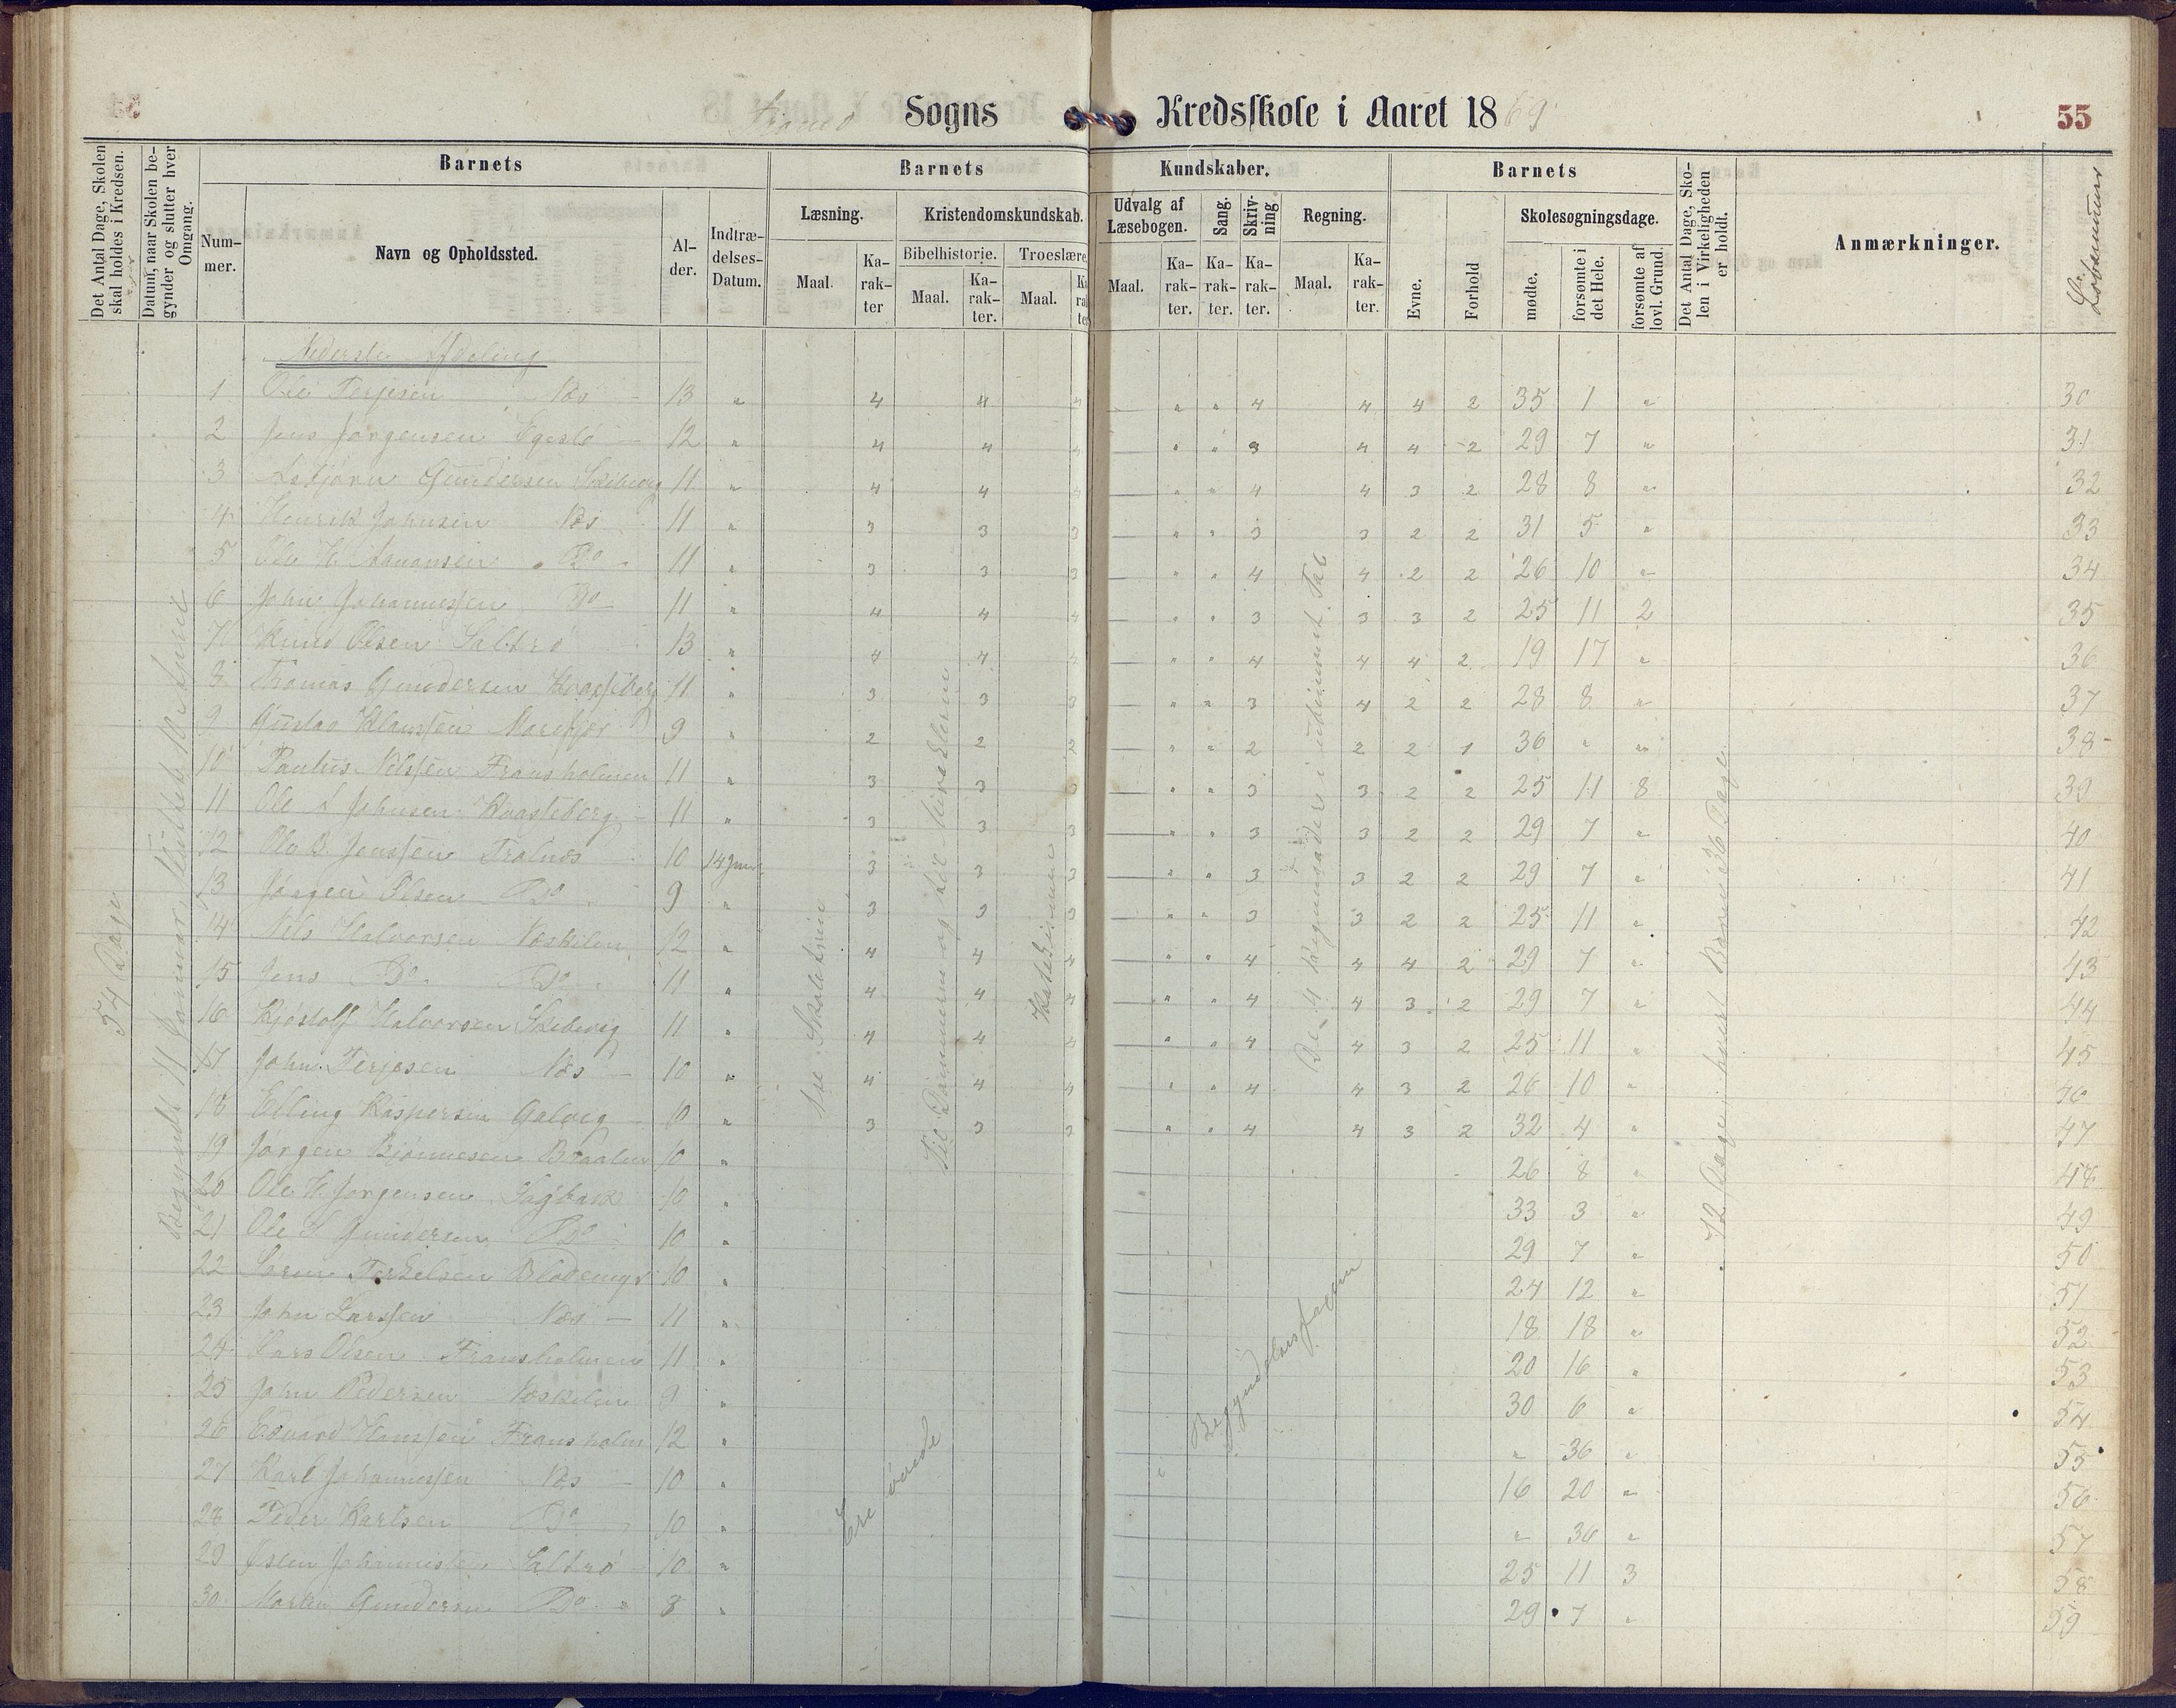 Sogns Kredsskole i Aaret 1869
55
Det Antal Dage, Skolen skal holdes i Kredsen.
Datum, naar Skolen begynder og slutter hver Omgang.
Barnets
Nummer.
Navn og Opholdssted.
Alder.
Indtrædelses-Datum.
Barnets Kundskaber.
Læsning.
Maal. Karakter
Kristendomskundskab.
Bibelhistorie. Maal. Karakter.
Troeslære. Maal. Karakter
Udvalg af Læsebogen. Maal. Karakter.
Sang. Karakter.
Skrivning. Karakter.
Regning. Maal. Karakter.
Barnets
Evne.
Forhold
Skolesøgningsdage.
mødte.
forsømte i det Hele.
forsømte af lovl. Grund.
Det Antal Dage, Skolen i Virkeligheden er holdt.
Anmærkninger.
Løbenummer
Nederste Afdeling
54 Dage
Begyndt 11 Januar, sluttet April
Katekismen
Begyndelsesfagene
Ere øvede
72 Dage, hvert Barn 36 Dage
1 Ole Terjesen Næs 13 " 4 4 4 " " 4 4 4 2 35 1 " 30
2 Jens Jørgensen 12 " 4 4 4 " " 3 4 4 2 29 7 " 31
3 Asbjørn Gundersen Skibvig 11 " 4 4 4 " " 4 4 3 2 28 8 " 32
4 Henrik Johnsen Næs 11 " 3 3 3 " " 3 3 2 2 31 5 " 33
5 Ole H. Do 11 " 3 3 3 " " 4 4 2 2 26 10 " 34
6 John Johannessen Do 11 " 4 4 4 " " 3 3 3 2 25 11 2 35
7 Knud Olsen Saltrø 13 " 4 4 4 " " 4 4 4 2 19 17 " 36
8 Thomas Gundersen 11 " 3 3 3 " " 3 4 2 2 28 8 " 37
9 Gustav Klaussen 9 " 2 2 2 " " 2 2 2 1 36 " " 38
10 Paulus Nilssen Fransholmen 11 " 3 3 3 " " 3 3 2 2 25 11 8 39
11 Ole A Johnsen 11 " 3 3 3 " " 3 3 2 2 29 7 " 40
12 Ole B. Jenssen Tralnes 10 14 Jun 3 3 3 " " 3 3 2 2 29 7 " 41
13 Jørgen Olsen Do 9 " 3 3 3 " " 3 3 2 2 25 11 " 42
14 Nils Halvorsen Næskilen 12 " 4 4 4 " " 4 4 4 2 29 7 " 43
15 Jens Do Do 11 " 4 4 4 " " 4 4 3 2 29 7 " 44
16 Kjøstolf Halvorsen Skibvig 11 " 4 4 4 " " 4 4 3 2 25 11 " 45
17 John Terjesen Næs 10 " 4 4 4 " " 4 4 3 2 26 10 " 46
18 Elling Kaspersen Galvig 10 " 3 3 3 " " 4 4 3 2 32 4 " 47
19 Jørgen Bjønnesen 10 " 26 8 " 48
20 Ole H. Jørgensen Sagbakk 10 " 33 3 " 49
21 Ole Gundersen Do 10 " 29 7 " 50
22 Søren Terkelsen 10 " 24 12 " 51
23 John Larssen Næs 11 " 18 18 " 52
24 Lars Olsen Fransholmen 11 " 20 16 " 53
25 John Pedersen Næskilen 9 " 30 6 " 54
26 Edvard Hanssen Fransholm 12 " " 36 " 55
27 Karl Johannessen Næs 10 " 16 20 " 56
28 Peder Karlsen Do 10 " " 36 " 57
29 Johannissen Saltrø 10 " 25 11 3 58
30 Martin Gundersen Do 8 " 29 7 " 59